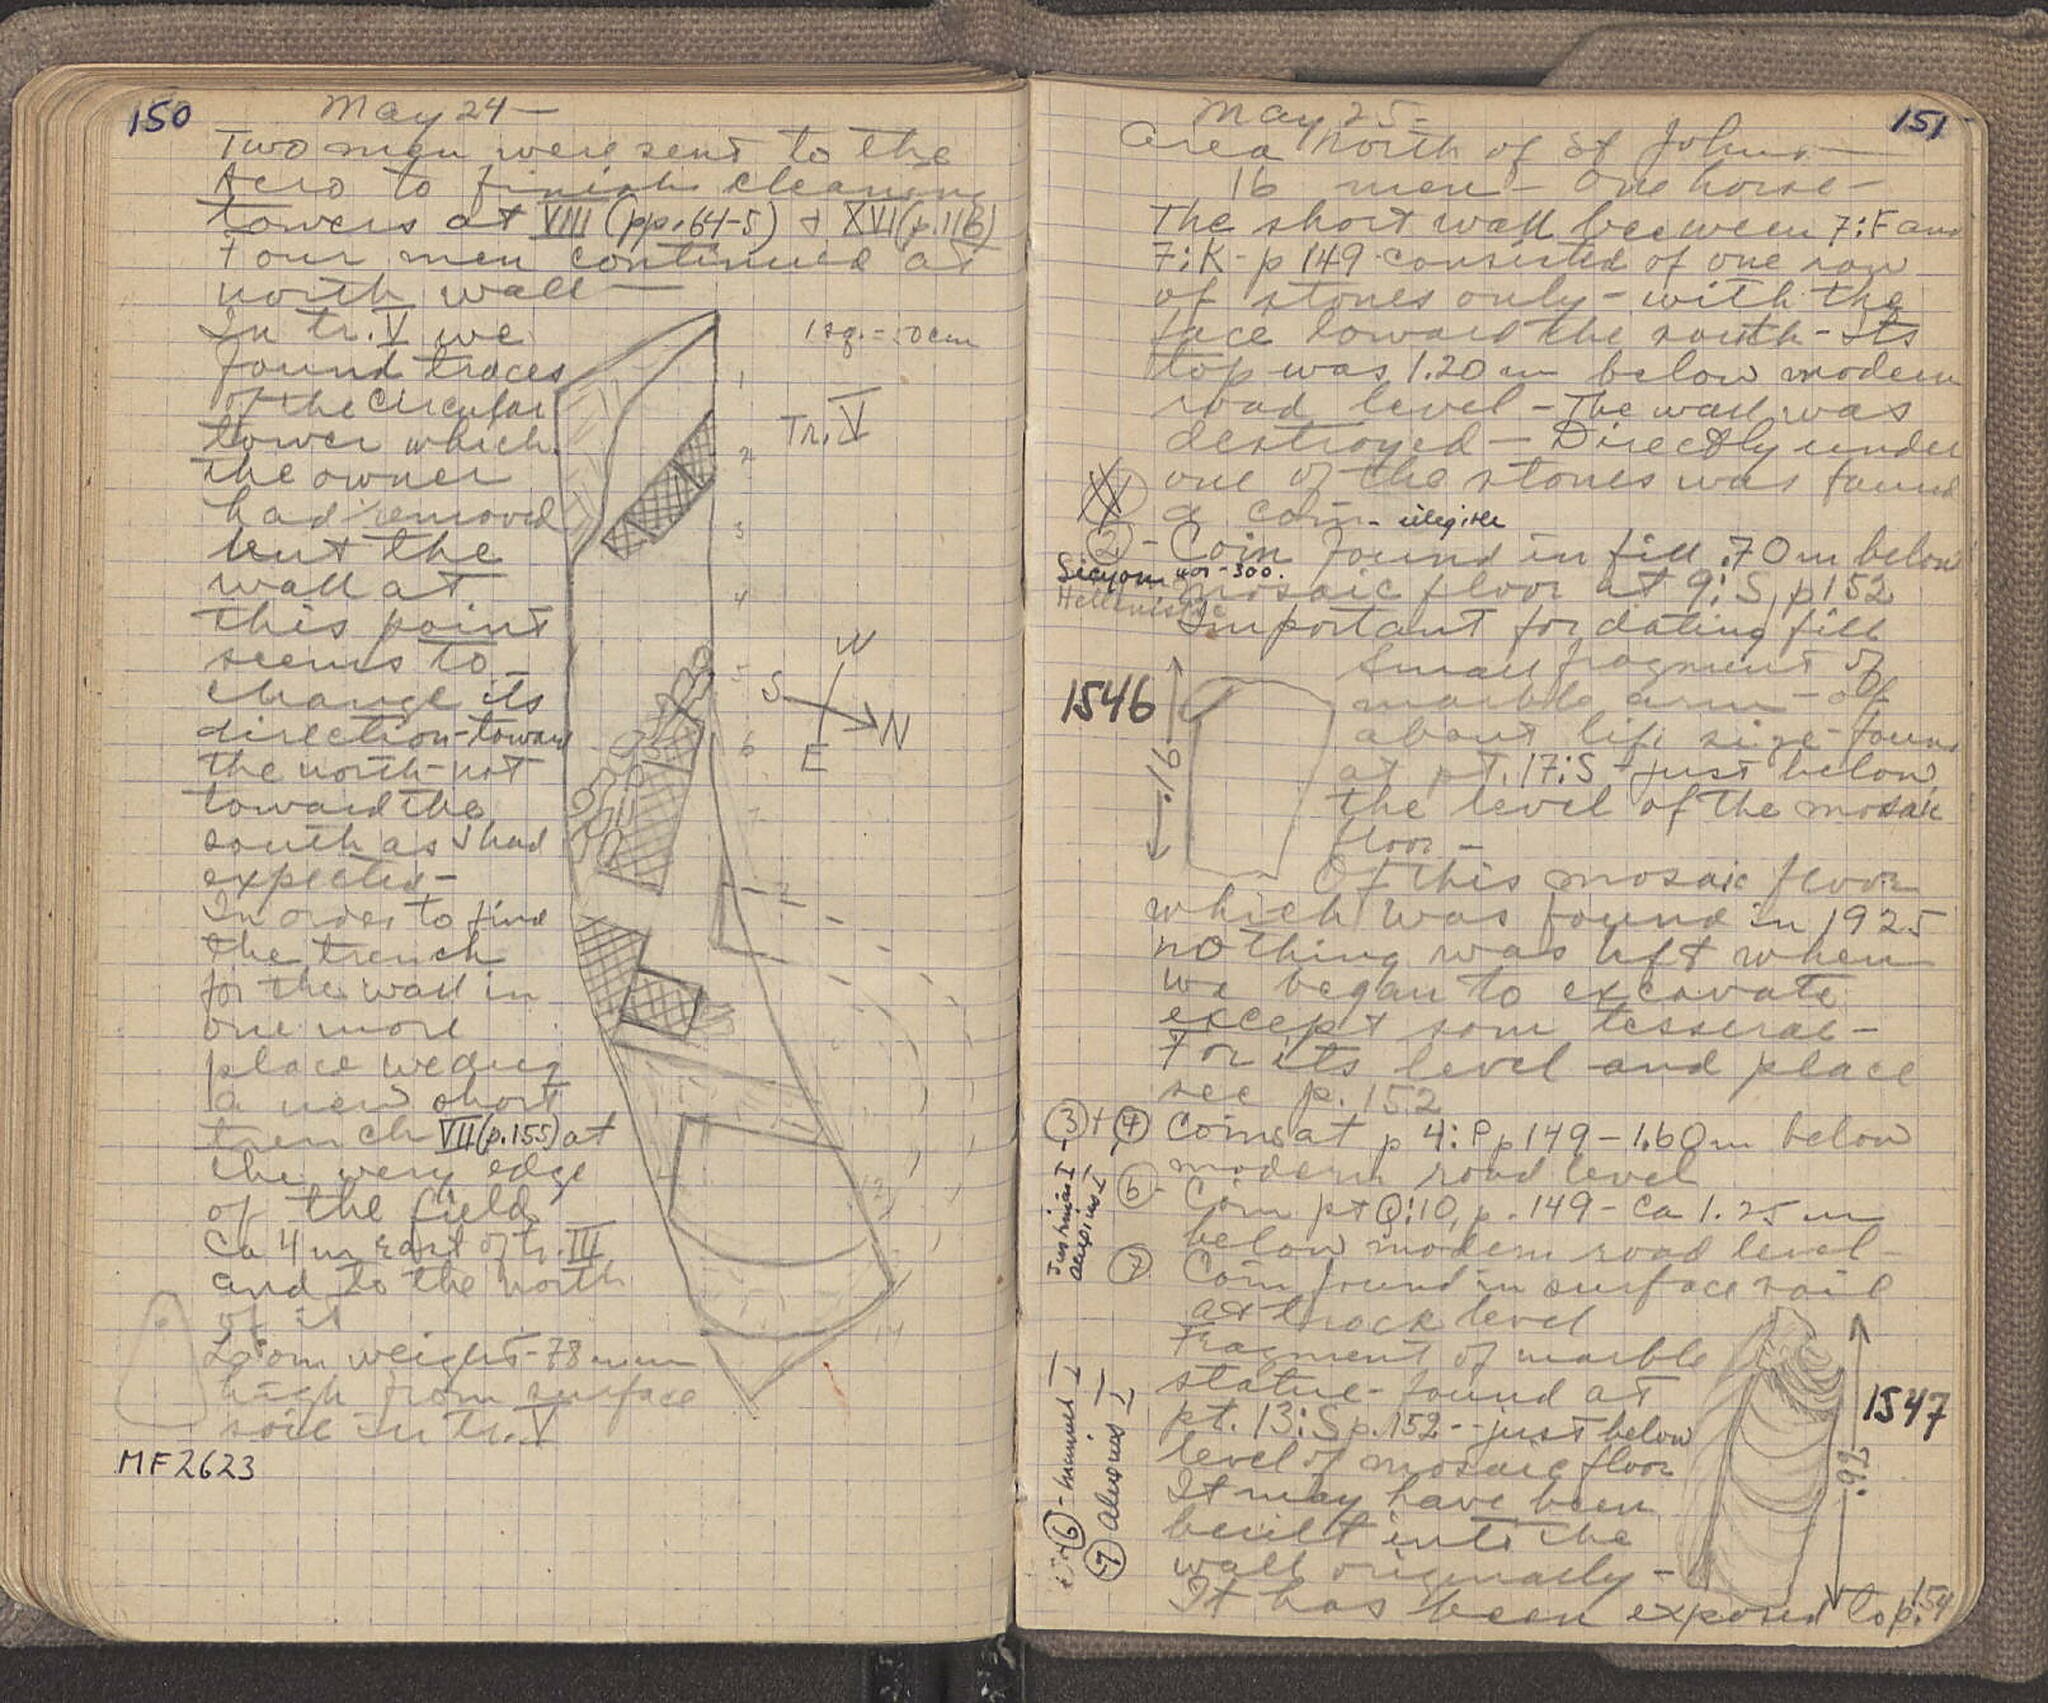 150
May 24 –
Two men were sent to the
Acro to finish cleaning
towers at VIII (pp. 64-5) + XVI (p. 116)
Four men continued at
north wall –
In tr. V we
found traces
of the circular
tower which
the owner
had removed
but the
wall at
this point
seems to
change its
direction - toward
the north - not
toward the
south as I had
expected –
In order to find
the trench
for the wall in
one more
place we dug
a new short
trench VII (p. 155) at
the very edge
of the field
Ca 4 m east of tr. III
and to the north
of it
Loom weight - 78 mm
high from surface
soil in tr. V
MF 2623
1 sq. = 50 cm
Tr. V
1
2
3
4
5
6
7
W
S
N
E
2
12
14
151
May 25 –
Area North of St Johns –
16 men – One horse –
The short wall between 7:F and
7:K - p 149 - consisted of one row
of stones only - with the
face toward the south - Its
top was 1.20 m below modern
road level - The wall was
destroyed – Directly under
one of the stones was found
a coin - illegible
② - Coin found in fill .70 m below
Sicyon 400-300.
mosaic floor at 9:S, p 152
Hellenistic
Important for dating fill
Small fragment of
1546
marble arm - of
about life size - found
.16
at pt. 17:S - just below
the level of the mosaic
floor –
Of this mosaic floor
which was found in 1925
nothing was left when
we began to excavate
except some tesserae –
For its level and place
see p. 152
③ + ④ Coins at p 4:P p 149 - 1.60 m below
modern road level
Justinian I
⑥ - Coin pt Q:10, p. 149 - Ca 1.25 m
below modern road level –
⑦ Coin found in surface soil
at track level
Fragment of marble
statue - found at
pt. 13:S p. 152 - just below
level of mosaic floor
It may have been
built into the
wall originally –
It has been exposed to p. 154
1547
⑥ - Manuel I
⑦ Alexius I